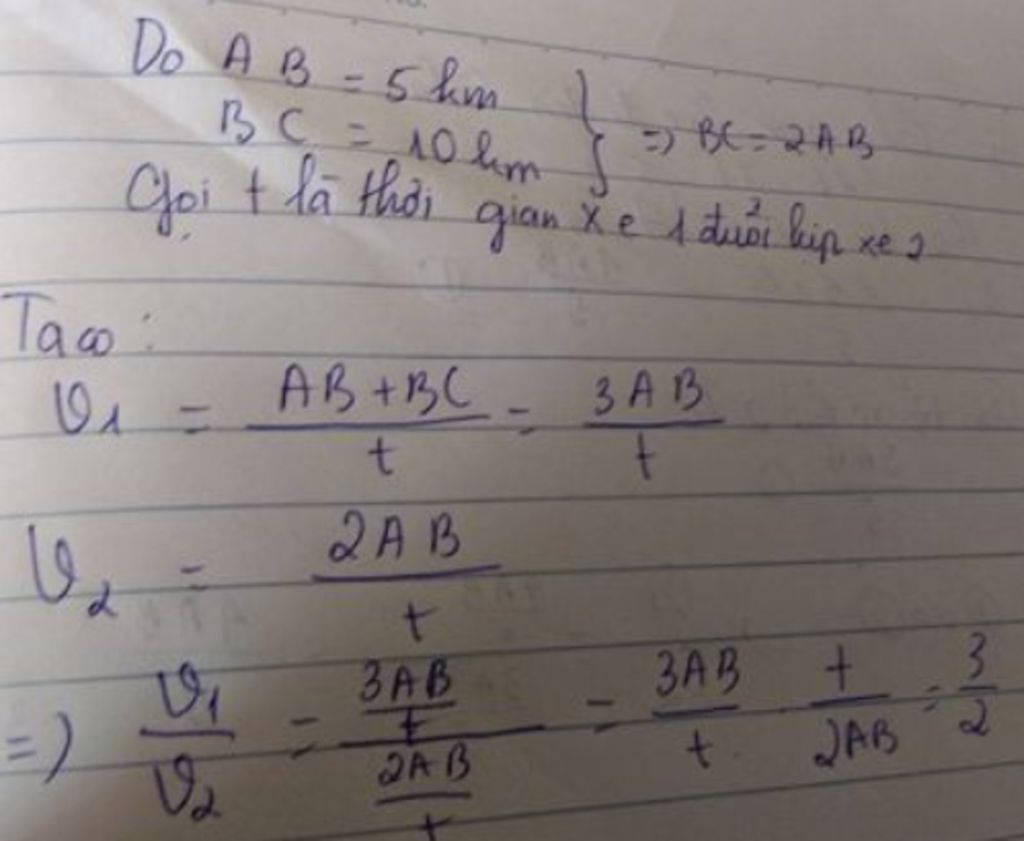 Do AB = 5 km
BC = 10 km } => BC = 2AB
Gọi t là thời gian xe 1 đuổi kịp xe 2
Ta có:
v1 = AB + BC / t = 3AB / t
v2 = 2AB / t
=> v1 / v2 = 3AB / t / 2AB / t = 3AB / t . t / 2AB = 3 / 2